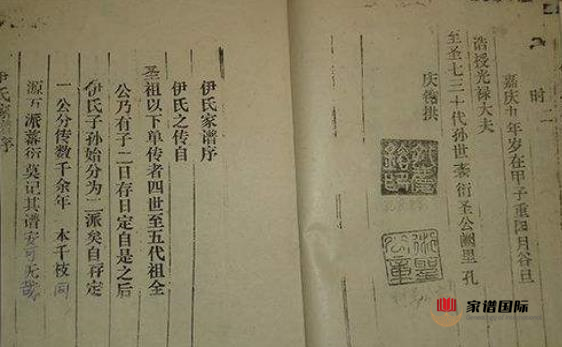 时二
嘉庆九年岁在甲子重四月谷旦
浩授光禄大夫
至圣七三十代孙世袭衍圣公阙里孔
庆镕拱
伊氏家谱序
伊氏之传自
圣祖以下单传者四世至五代祖全
公乃有子二日存日定自是之后
伊氏子孙始分为二派矣自存定
一公分传数千余年 木千枝同
源万派蕃衍莫记其谱安可无哉
伊氏家谱序
家谱国际